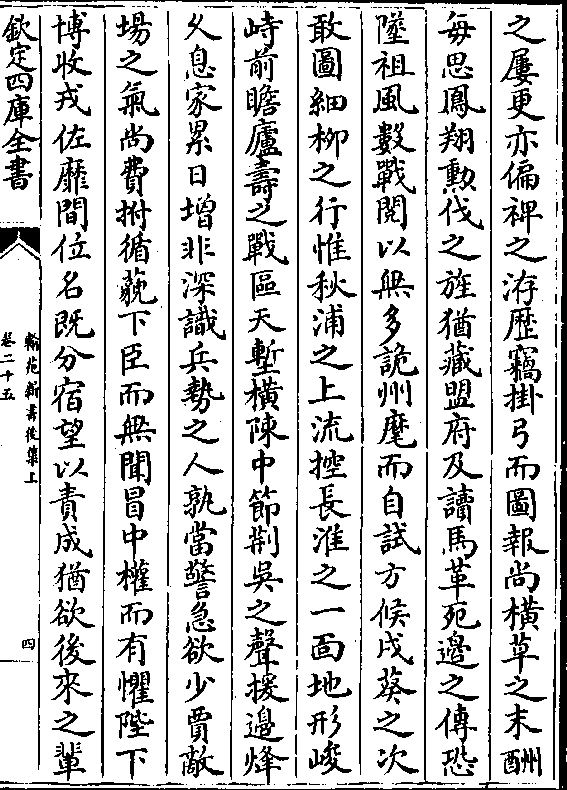 之屢更亦偏裨之洊歴竊掛弓而圖報尚橫草之末酬
每思鳳翔勲伐之旌猶藏盟府及讀馬革死邉之傳恐
墜祖風數戰閥以無多詭州麾而自試方候戍葵之次
敢圖細栁之行惟秋浦之上流控長淮之一面地形峻
峙前瞻廬壽之戰區天塹橫陳中節荆吳之聲援邉烽
乆息家累日增非深識兵勢之人孰當警急欲少賈敵
場之氣尚費拊循藐下臣而無聞冒中權而有懼陛下
博收戎佐靡間位名既分宿望以責成猶欲後來之輩
欽定四庫全書
翰苑新書後集上
卷二十五
四